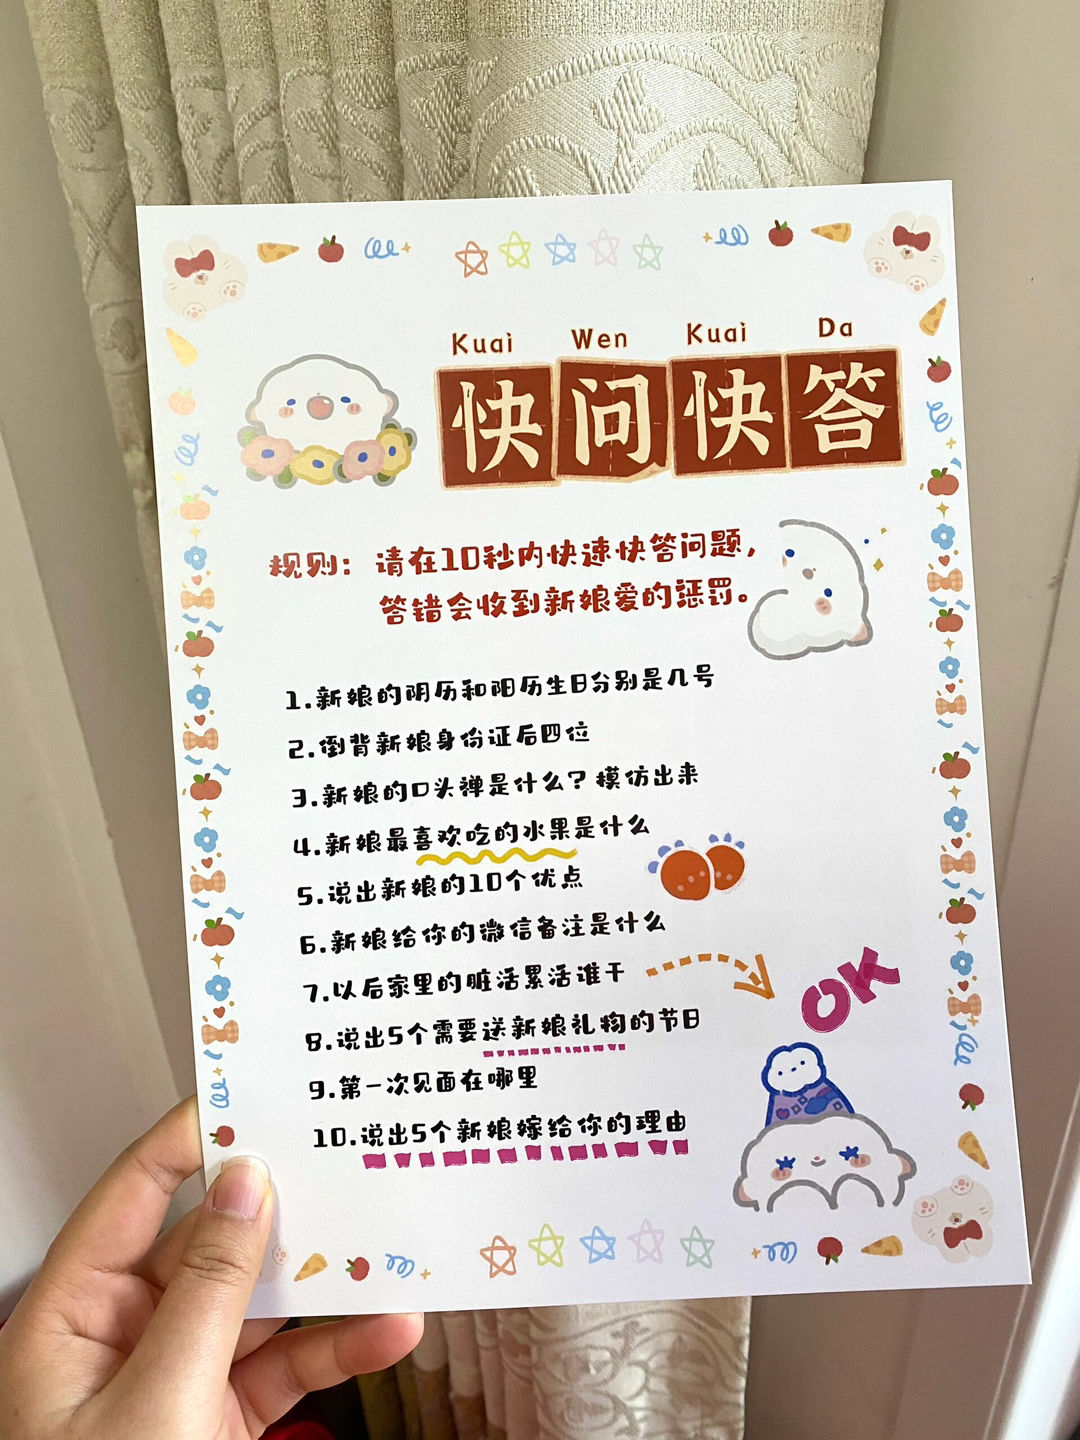 Kuai Wen Kuai Da
快问快答
规则：请在10秒内快速快答问题，
答错会收到新娘爱的惩罚。
1.新娘的阴历和阳历生日分别是几号
2.倒背新娘身份证后四位
3.新娘的口头禅是什么？模仿出来
4.新娘最喜欢吃的水果是什么
5.说出新娘的10个优点
6.新娘给你的微信备注是什么
7.以后家里的脏活累活谁干
8.说出5个需要送新娘礼物的节日
9.第一次见面在哪里
10.说出5个新娘嫁给你的理由
OK